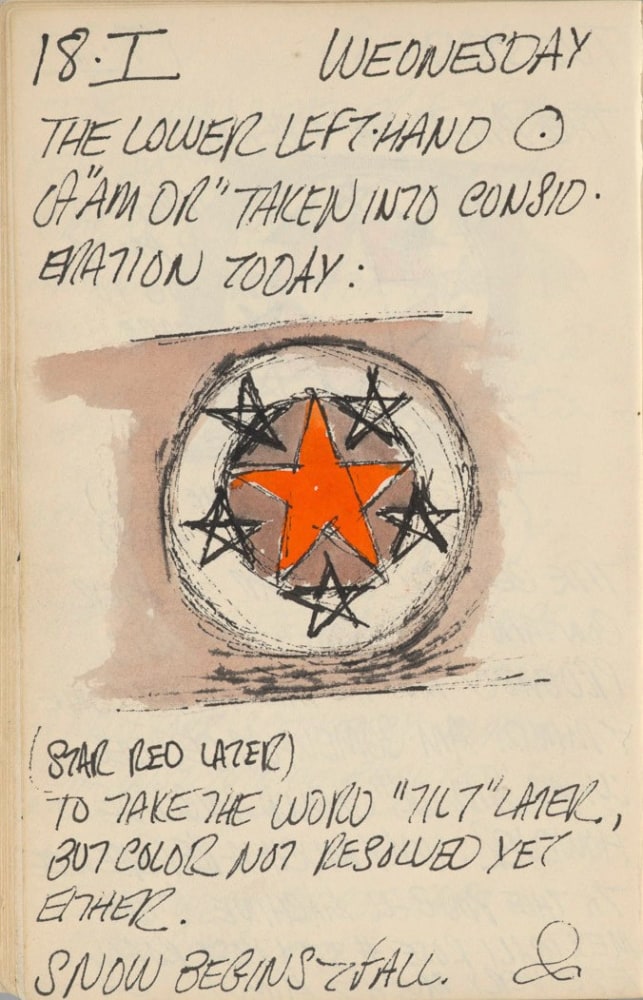 18·I WEDNESDAY
THE LOWER LEFT·HAND ⊙
OF "AM DR" TAKEN INTO CONSID·
ERATION TODAY:
(STAR RED LATER)
TO TAKE THE WORD "TILT" LATER,
BUT COLOR NOT RESOLVED YET
EITHER.
SNOW BEGINS TO FALL.